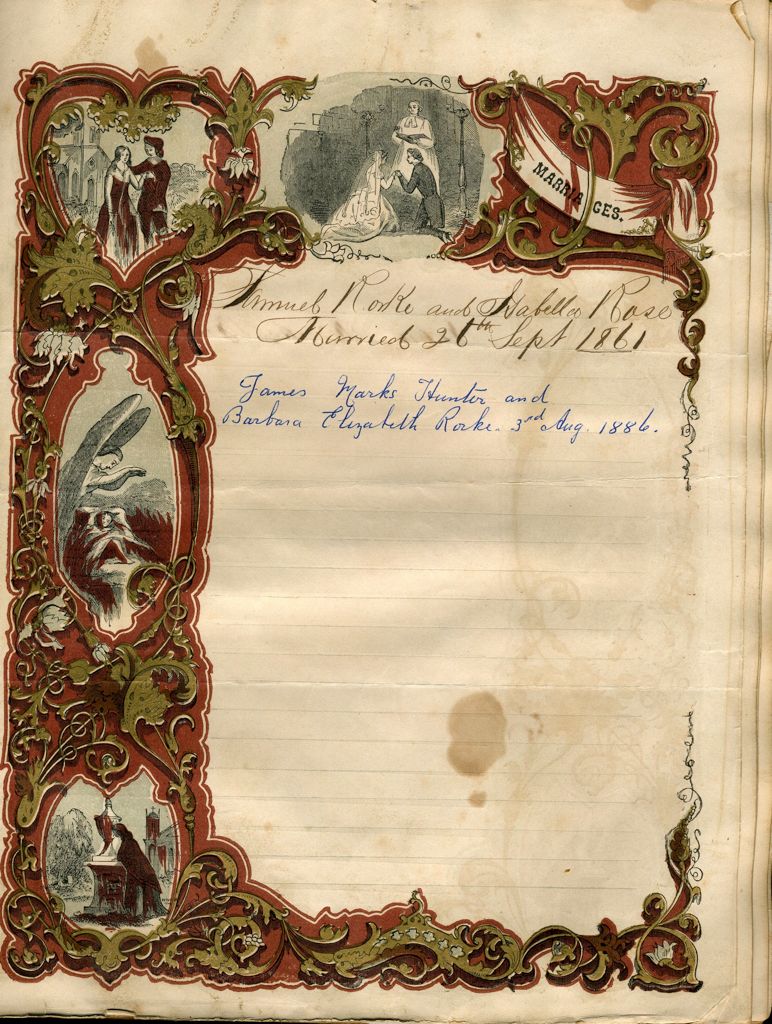 MARRIAGES.
Samuel Rorke and Isabella Rose
Married 26th Sept 1861
James Marks Hunter and
Barbara Elizabeth Rorke. 3rd Aug. 1886.